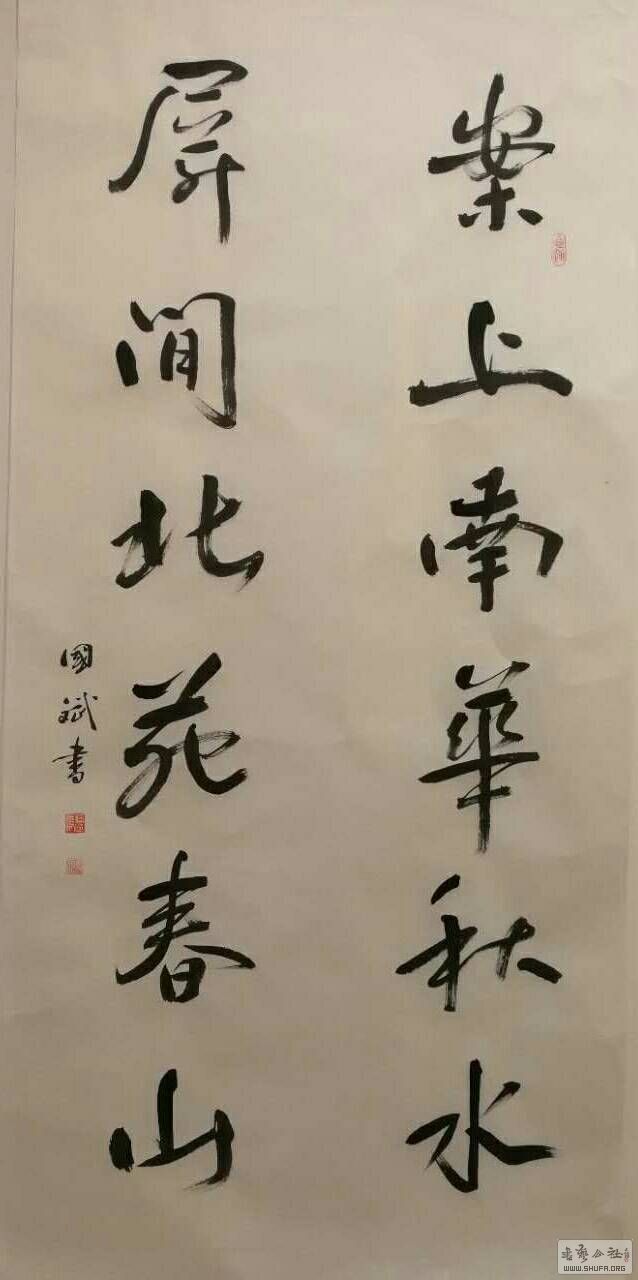 案上南華秋水
屏間北苑春山
國斌書
书艺公社
WWW.SHUFA.ORG